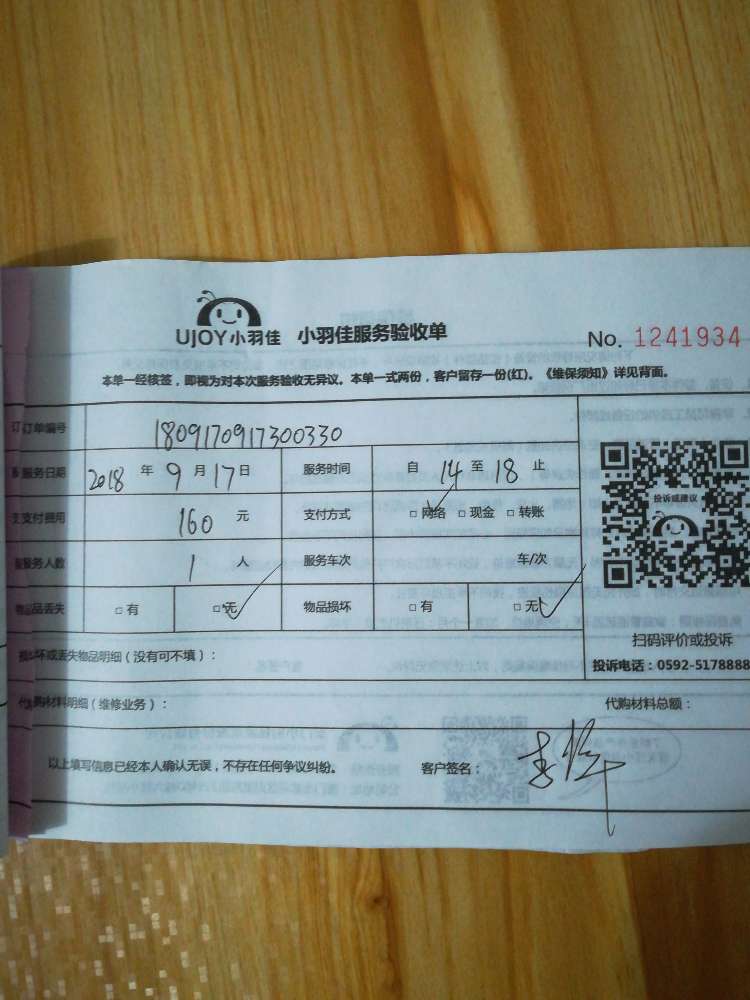 UJOY小羽佳 小羽佳服务验收单
No. 1241934
本单一经核签，即视为对本次服务验收无异议。本单一式两份，客户留存一份(红)。《维保须知》详见背面。
订单编号 1809170917300330
服务日期 2018 年 9 月 17 日 服务时间 自 14 至 18 止
支付费用 160 元 支付方式 □网络 □现金 □转账
服务人数 1 人 服务车次 车/次
物品丢失 □有 □无 物品损坏 □有 □无
投诉或建议
扫码评价或投诉
投诉电话：0592-5178888
损坏或丢失物品明细（没有可不填）：
代购材料明细（维修业务）： 代购材料总额：
以上填写信息已经本人确认无误，不存在任何争议纠纷。 客户签名：